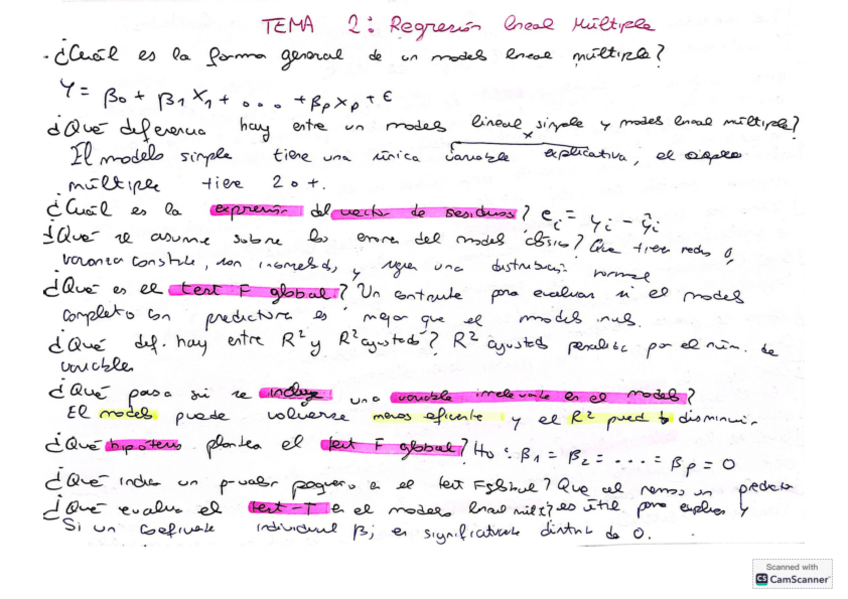 TEMA 2: Regresión lineal Múltiple
¿Cuál es la forma general de un modelo lineal múltiple?
Y = β0 + β1 X1 + ... + βp Xp + ϵ
¿Qué diferencia hay entre un modelo lineal simple y modelo lineal múltiple?
El modelo simple tiene una única variable explicativa, el
múltiple tiene 2 o +.
¿Cuál es la expresión del vector de residuos? ei = yi - ŷi
¿Qué se asume sobre los errores del modelo clásico? Que tienen media 0,
varianza constante, son incorrelados, y siguen una distribución normal
¿Qué es el test F global? Un contraste para evaluar si el modelo
completo con predictora es mejor que el modelo nulo.
¿Qué dif. hay entre R² y R² ajustado? R² ajustado penaliza por el núm. de
variables
¿Qué pasa si se incluye una variable irrelevante en el modelo?
El modelo puede volverse menos eficiente y el R² pued disminuir
¿Qué hipótesis plantea el test F global? H0: β1 = β2 = .... = βp = 0
¿Qué indica un p-valor pequeño en el test F global? Que al menos un predictor
es útil para explicar y
¿Qué evalua el test-T en el modelo lineal mult?
Si un coeficiente individual βj es significativamente distinto de 0.
Scanned with
CS CamScanner